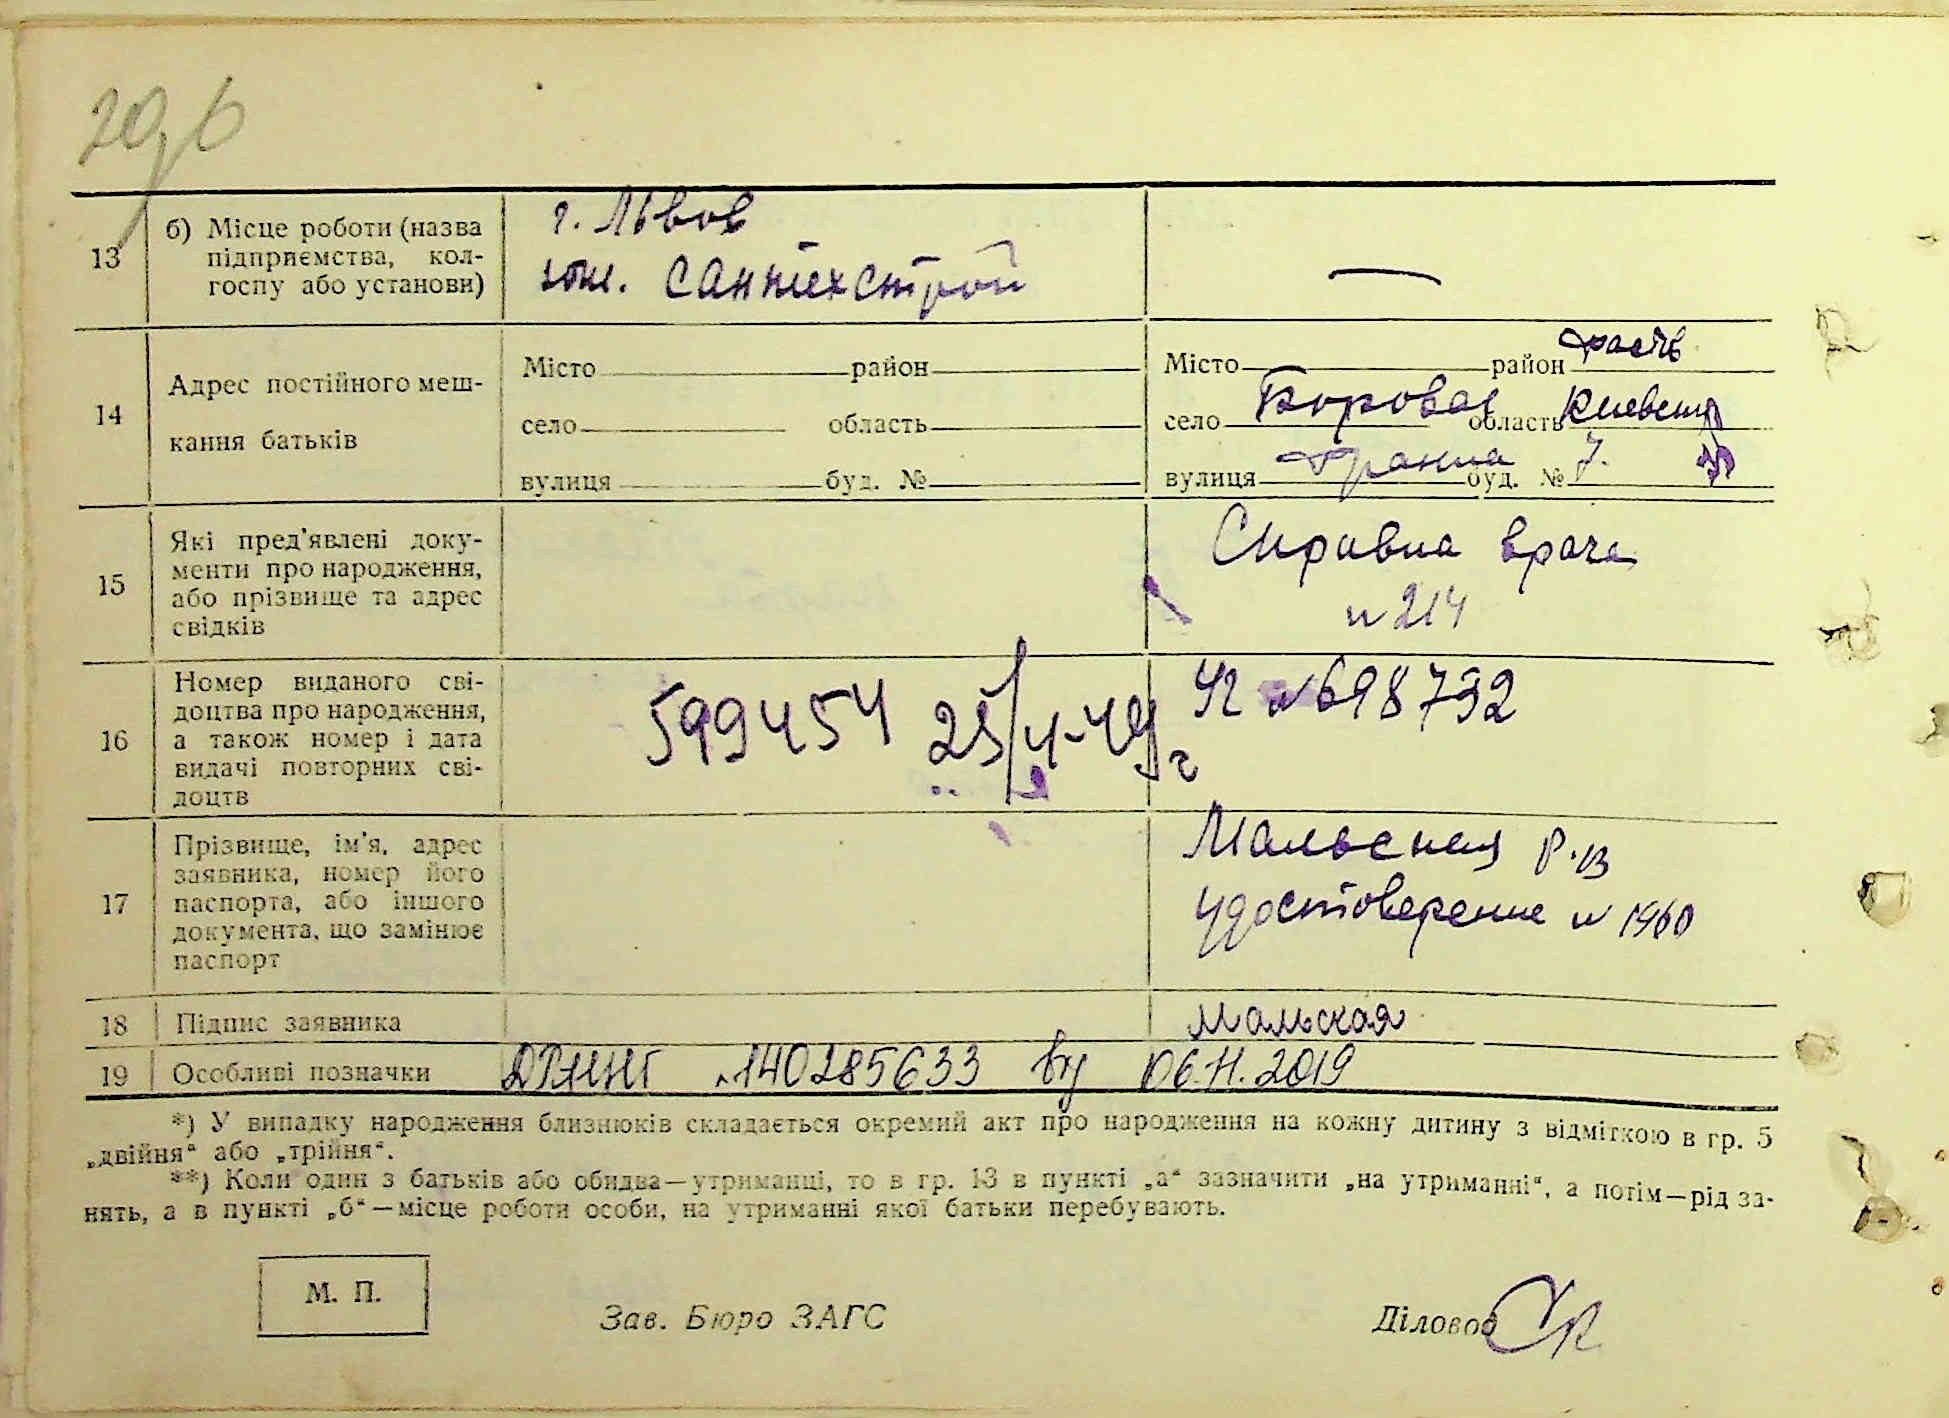 13
б) Місце роботи (назва
підприємства, кол-
госпу або установи)
г. Львов
Сантехстрой
—
14
Адрес постійного меш-
кання батьків
Місто район
село область
вулиця буд. №
Місто район Фастів
село Боровая область Киевська
вулиця буд. № 7.
15
Які пред'явлені доку-
менти про народження,
або прізвище та адрес
свідків
Справка врача
№ 214
16
Номер виданого сві-
доцтва про народження,
а також номер і дата
видачі повторних сві-
доцтв
599454
№ 698732
17
Прізвище, ім'я, адрес
заявника, номер його
паспорта, або іншого
документа, що замінює
паспорт
Мальская Р.В
удостоверение № 1960
18
Підпис заявника
Мальская
19
Особливі позначки
140285633 06.11.2019
*) У випадку народження близнюків складається окремий акт про народження на кожну дитину з відміткою в гр. 5
„двійня“ або „трійня“.
**) Коли один з батьків або обидва—утриманці, то в гр. 13 в пункті „а“ зазначити „на утриманні“, а потім—рід за-
нять, а в пункті „б“—місце роботи особи, на утриманні якої батьки перебувають.
М. П.
Зав. Бюро ЗАГС
Діловод